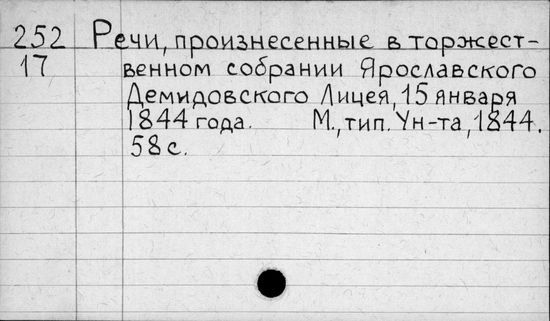 252 Речи, произнесенные в торжест-
17 венном собрании Ярославского
Демидовского Лицея, 15 января
1844 года. М., тип. Ун-та, 1844.
58 с.